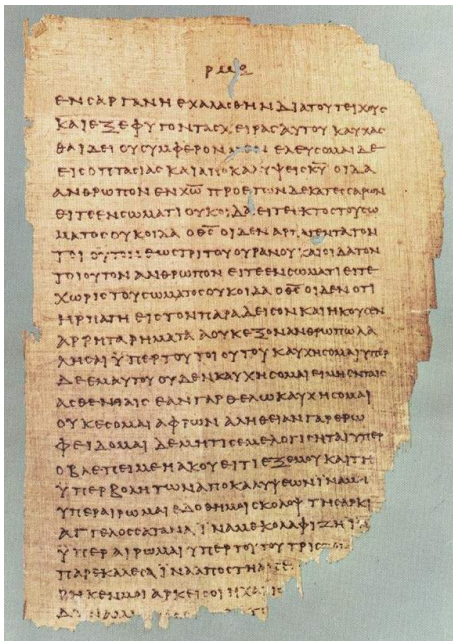 ΕΝϹΑΡΓΑΝΗΕΧΑΛΑϹΘΗΝΔΙΑΤΟΥΤΕΙΧΟΥϹ
ΚΑΙΕΞΕΦΥΓΟΝΤΑϹΧΕΙΡΑϹΑΥΤΟΥΚΑΥΧΑϹ
ΘΑΙΔΕΙΟΥϹΥΜΦΕΡΟΝΜΕΝΕΛΕΥϹΟΜΑΙΔΕ
ΕΙϹΟΠΤΑϹΙΑϹΚΑΙΑΠΟΚΑΛΥΨΕΙϹΚ̅Υ̅ΟΙΔΑ
ΑΝΘΡΩΠΟΝΕΝΧ̅Ω̅ΠΡΟΕΤΩΝΔΕΚΑΤΕϹϹΑΡΩΝ
ΕΙΤΕΕΝϹΩΜΑΤΙΟΥΚΟΙΔΑΕΙΤΕΕΚΤΟϹΤΟΥϹΩ
ΜΑΤΟϹΟΥΚΟΙΔΑΟΘ̅Ϲ̅ΟΙΔΕΝΑΡΠΑΓΕΝΤΑΤΟΝ
ΤΟΙΟΥΤΟΝΕΩϹΤΡΙΤΟΥΟΥΡΑΝΟΥΚΑΙΟΙΔΑΤΟΝ
ΤΟΙΟΥΤΟΝΑΝΘΡΩΠΟΝΕΙΤΕΕΝϹΩΜΑΤΙΕΙΤΕ
ΧΩΡΙϹΤΟΥϹΩΜΑΤΟϹΟΥΚΟΙΔΑΟΘ̅Ϲ̅ΟΙΔΕΝΟΤΙ
ΗΡΠΑΓΗΕΙϹΤΟΝΠΑΡΑΔΕΙϹΟΝΚΑΙΗΚΟΥϹΕΝ
ΑΡΡΗΤΑΡΗΜΑΤΑΑΟΥΚΕΞΟΝΑΝΘΡΩΠΩΛΑ
ΛΗϹΑΙΫΠΕΡΤΟΥΤΟΙΟΥΤΟΥΚΑΥΧΗϹΟΜΑΙΥΠΕΡ
ΔΕΕΜΑΥΤΟΥΟΥΔΕΝΚΑΥΧΗϹΟΜΑΙΕΙΜΗΕΝΤΑΙϹ
ΑϹΘΕΝΕΙΑΙϹΕΑΝΓΑΡΘΕΛΩΚΑΥΧΗϹΟΜΑΙ
ΟΥΚΕϹΟΜΑΙΑΦΡΩΝΑΛΗΘΕΙΑΝΓΑΡΕΡΩ
ΦΕΙΔΟΜΑΙΔΕΜΗΤΙϹΕΜΕΛΟΓΙϹΗΤΑΙΥΠΕΡ
ΟΒΛΕΠΕΙΜΕΗΑΚΟΥΕΙΤΙΕΞΕΜΟΥΚΑΙΤΗ
ΫΠΕΡΒΟΛΗΤΩΝΑΠΟΚΑΛΥΨΕΩΝΙΝΑΜΗ
ΥΠΕΡΑΙΡΩΜΑΙΕΔΟΘΗΜΟΙϹΚΟΛΟΨΤΗϹΑΡΚΙ
ΑΓΓΕΛΟϹϹΑΤΑΝΑΪΝΑΜΕΚΟΛΑΦΙΖΗΙΝΑ
ΫΠΕΡΑΙΡΩΜΑΙΥΠΕΡΤΟΥΤΟΥΤΡΙϹ
ΠΑΡΕΚΑΛΕϹΑΪΝΑΑΠΟϹΤΗ
ΡΗΚΕΝΜΟΙΑΡΚΕΙϹΟΙΗΧΑΡΙϹ